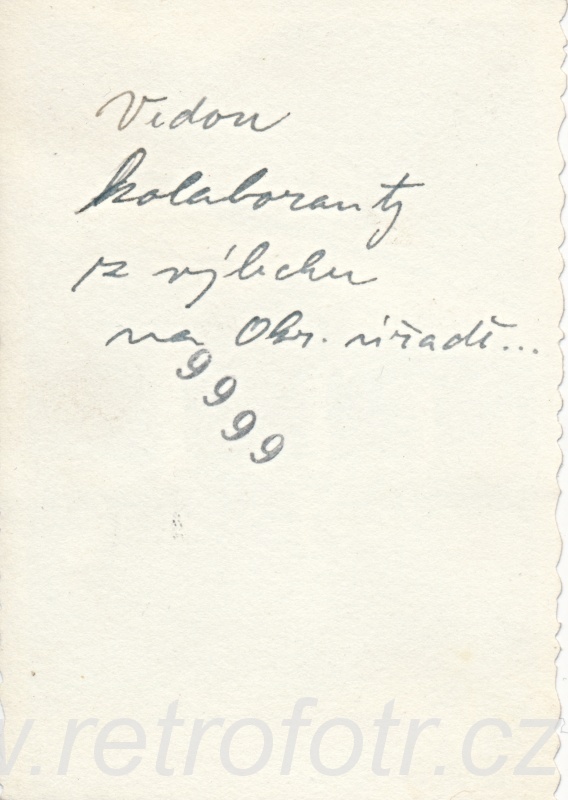 Vedou
kolaboranty
k výslechu
na Okr. úřadě...
9999
www.retrofotr.cz